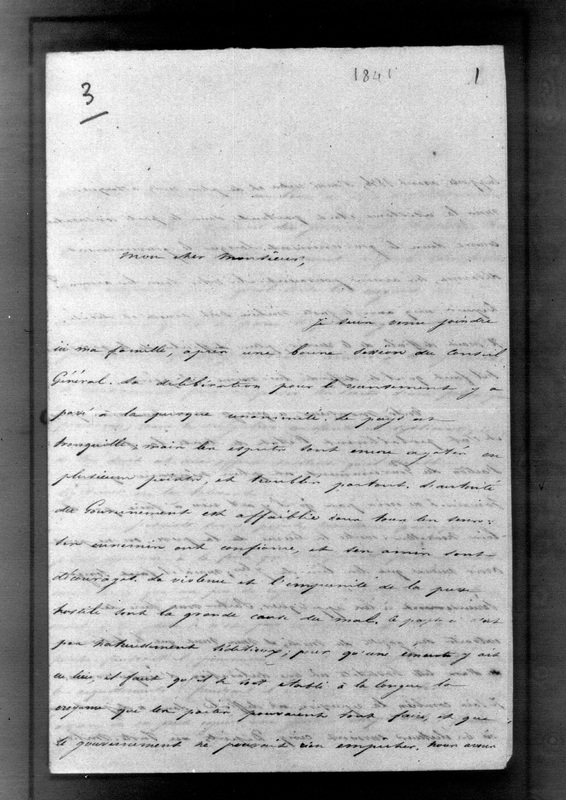 3
1841
1
Mon cher Monsieur,
Je suis venu joindre
ici ma famille, après une bonne session du Conseil
Général. La délibération pour le recensement y a
passé à la presque unanimité. Le pays est
tranquille, mais les esprits sont encore agités en
plusieurs points, et troublés partout. L'autorité
du Gouvernement est affaiblie dans tous les sens:
ses ennemis ont confiance, et ses amis sont
découragés. La violence et l'impunité de la presse
hostile sont la grande cause du mal. Le pays n'est
pas naturellement séditieux; pour qu'une émeute y ait
eu lieu, il faut qu'il se soit établi à la longue la
croyance que les partis pouvaient tout faire, et que
le gouvernement ne pouvait rien empêcher. Nous avons